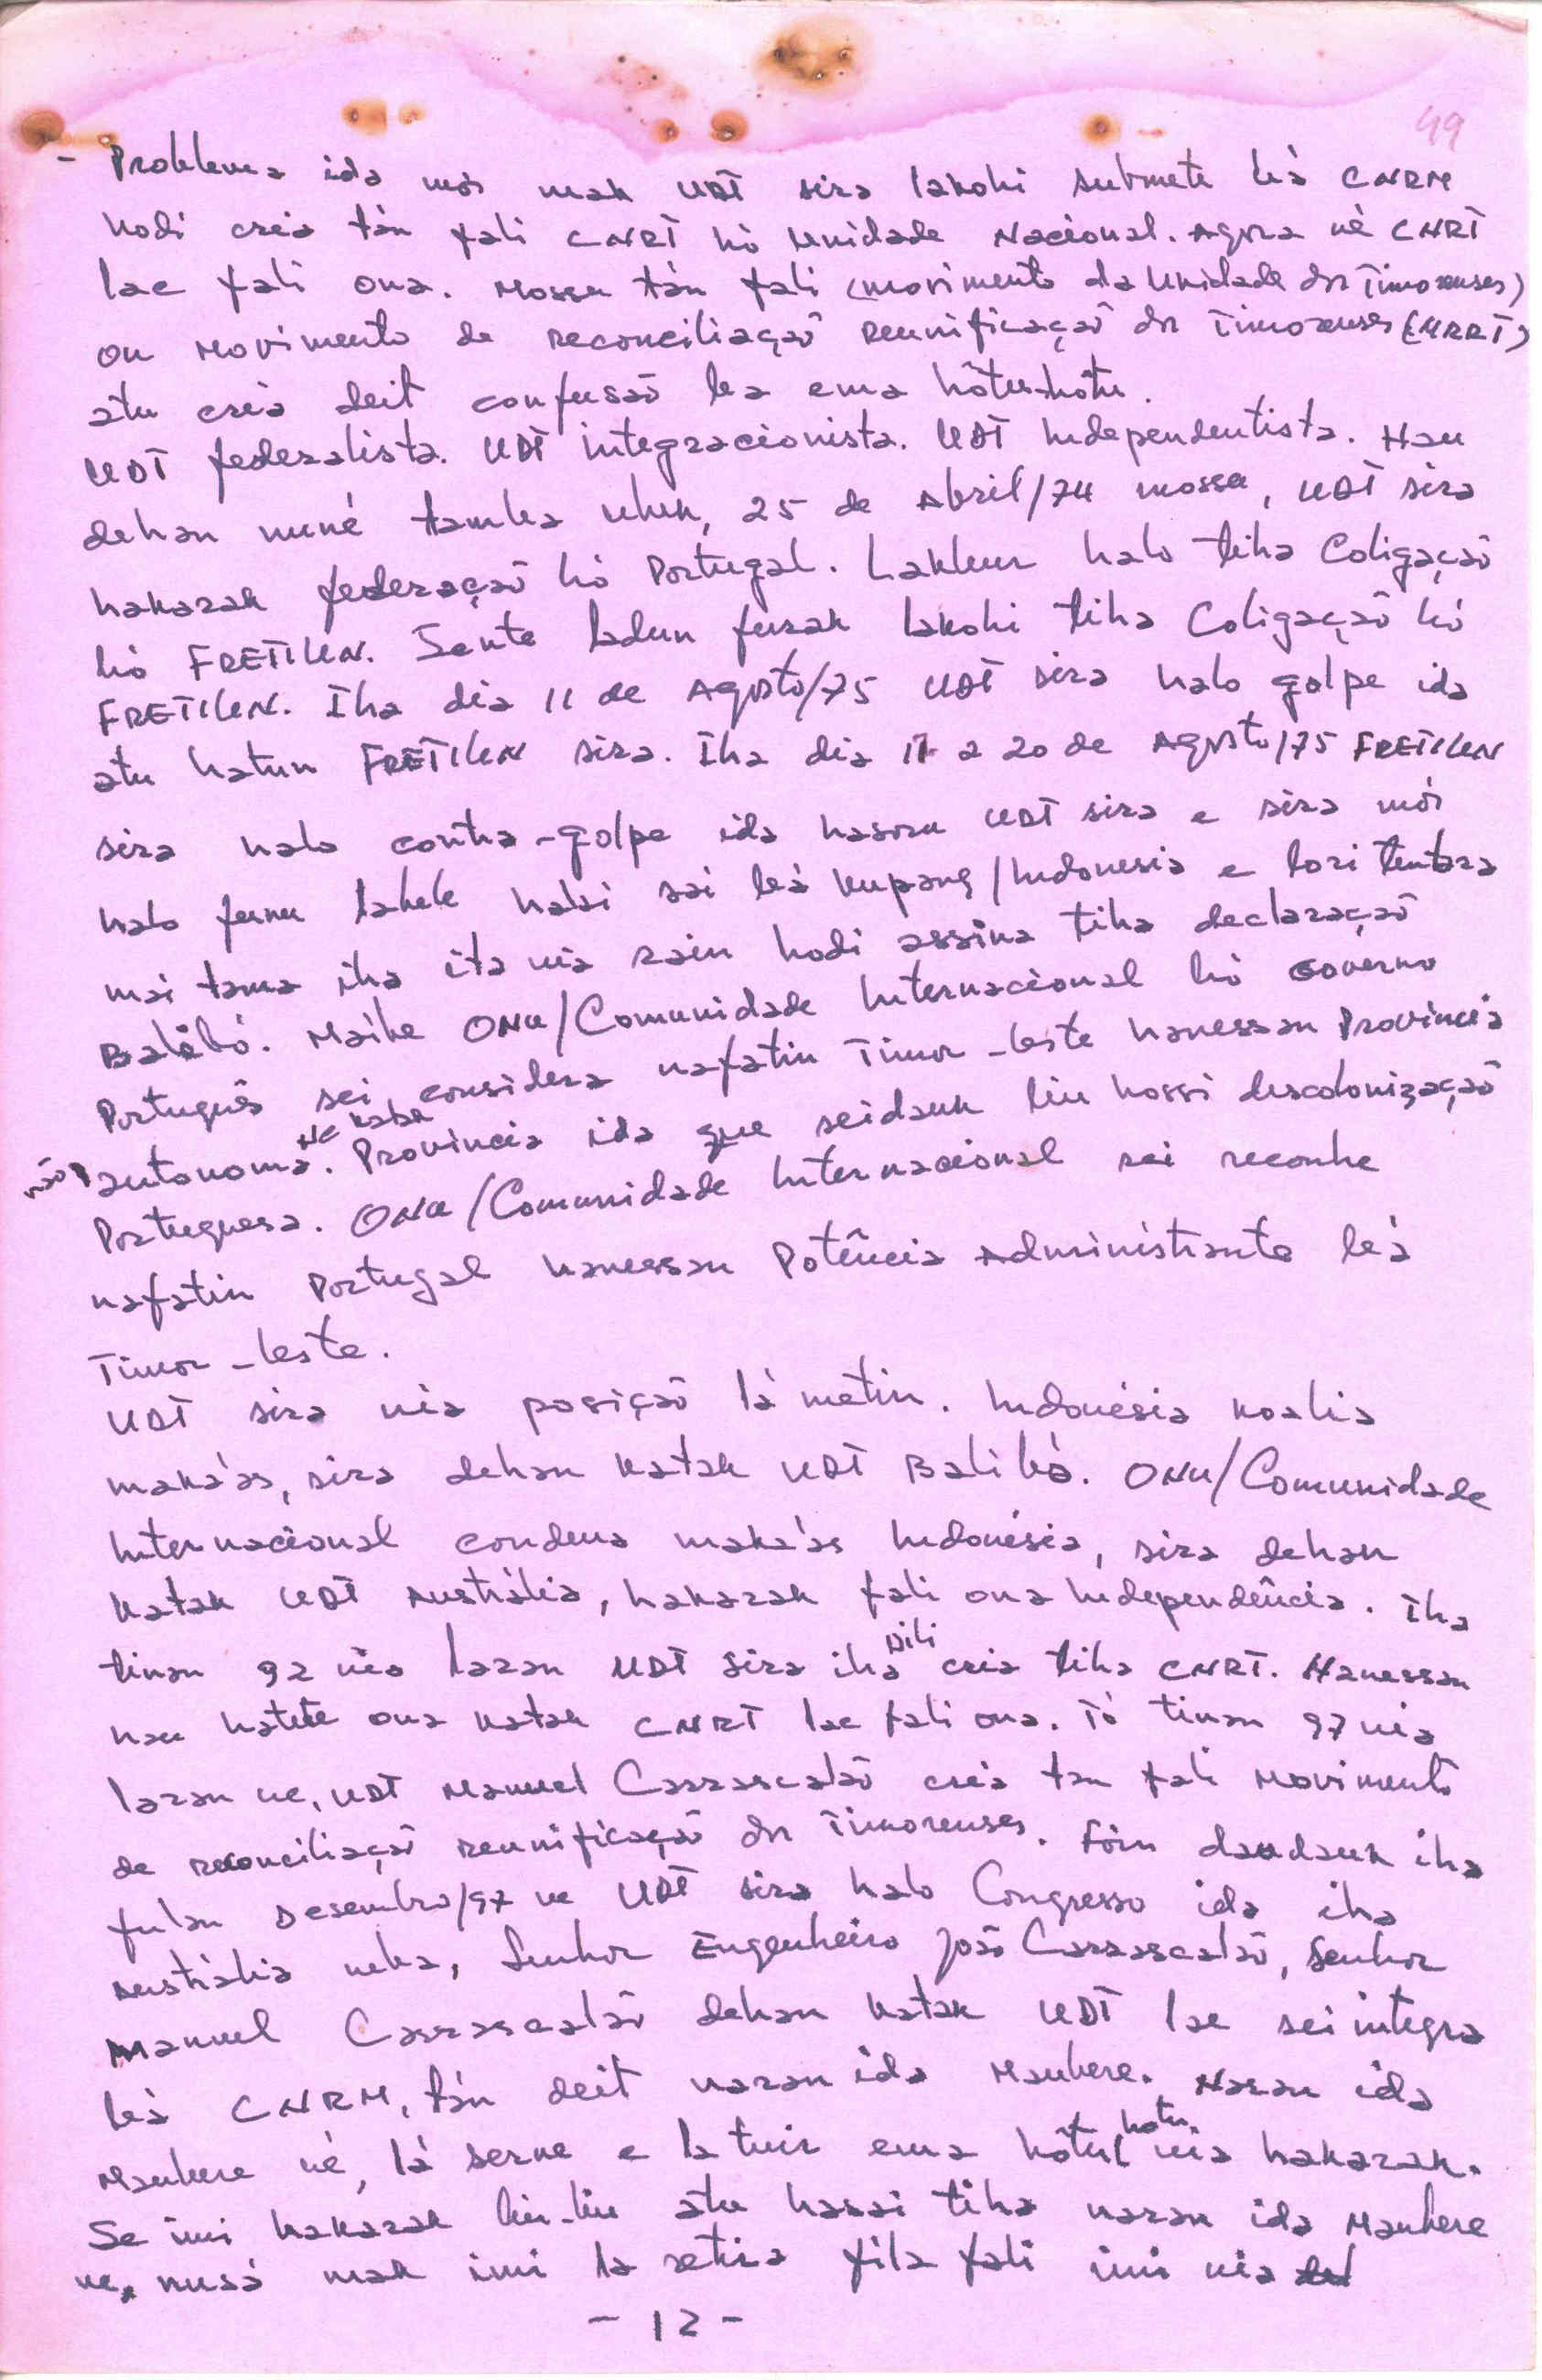 49
- Problema ida mós mak UDT sira lakohi submete bà CNRM
hodi cria tán fali CNRT hó Unidade Nacional. Agora né CNRT
lae fali ona. Mossu tán fali (movimento da Unidade dos Timorenses)
ou Movimento de reconciliação Reunificação dos Timorenses (MRRT)
atu cria deit confusaõ ba ema hôtu-hôtu.
UDT federalista. UDT integracionista. UDT Independentista. Hau
dehan nuné tamba uluk, 25 de Abril/74 mossu, UDT sira
hakarak federaçaõ hó Portugal. Lakleur halo tiha Coligaçaõ
hó FRETILIN. Sente ladun furak lakohi tiha Coligaçaõ hó
FRETILIN. Iha dia 11 de Agosto/75 UDT sira halo golpe ida
atu hatun FRETILIN sira. Iha dia 11 a 20 de Agosto/75 FRETILIN
sira halo contra-golpe ida hasoru UDT sira e sira mós
halo funu labele halai sai bá Kupang/Indonesia e lori tentara
mai tama iha ita nia rain hodi assina tiha declaraçaõ
Balibó. Maibe ONU/Comunidade Internacional hó Governo
Português sei considera nafatin Timor-Leste hanessan Província
não autonoma. Ne katak Província ida que seidauk liu hossi descolonizaçaõ
Portuguesa. ONU/Comunidade Internacional sei reconhe
nafatin Portugal hanessan Potência Administrante bá
Timor-Leste.
UDT sira nia posiçaõ lá metin. Indonésia koalia
maka'as, sira dehan katak UDT Balibó. ONU/Comunidade
Internacional condena maka'as Indonésia, sira dehan
katak UDT Austrália, hakarak fali ona Independência. Iha
tinan 92 nia laran UDT sira iha Dili cria tiha CNRT. Hanessan
hau hatete ona katak CNRT lae fali ona. Tó tinan 97 nia
laran ne, UDT Manuel Carrascalaõ cria tan fali Movimento
de reconciliaçaõ reunificaçaõ dos Timorenses. Foin daudauk iha
fulan Desembro/97 ne UDT sira halo Congresso ida iha
Austrália neba, Senhor Engenheiro João Carrascalaõ, Senhor
Manuel Carrascalaõ dehan katak UDT lae sei integra
bà CNRM, tán deit naran ida Maubere. Naran ida
Maubere né, lá serve e la tuir ema hôtu hotu nia hakarak.
Se imi hakarak liu-liu atu hasai tiha naran ida Maubere
ne, nusá mak imi la retira fila fali imi nia
- 12 -